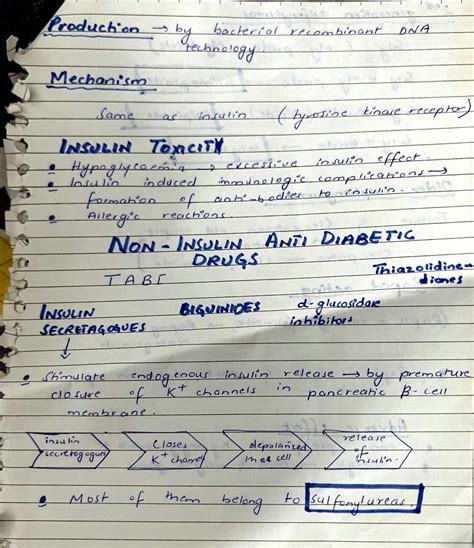 Production → by bacterial recombinant DNA
technology
Mechanism
Same as insulin (tyrosine kinase receptor)
INSULIN TOXICITY
• Hypoglycaemia → excessive insulin effect.
• Insulin induced immunologic complications →
formation of anti-bodies to insulin.
• Allergic reactions.
NON-INSULIN ANTI DIABETIC
DRUGS
TABI
INSULIN
SECRETAGOGUES
BIGUINIDES
α-glucosidase
inhibitors
Thiazolidine-
diones
↓
• Stimulate endogenous insulin release → by premature
closure of K+ channels in pancreatic β-cell
membrane.
insulin
secretogogues
Closes
K+ channel
depolarized
the cell
release
of
insulin.
• Most of them belong to sulfonylureas.